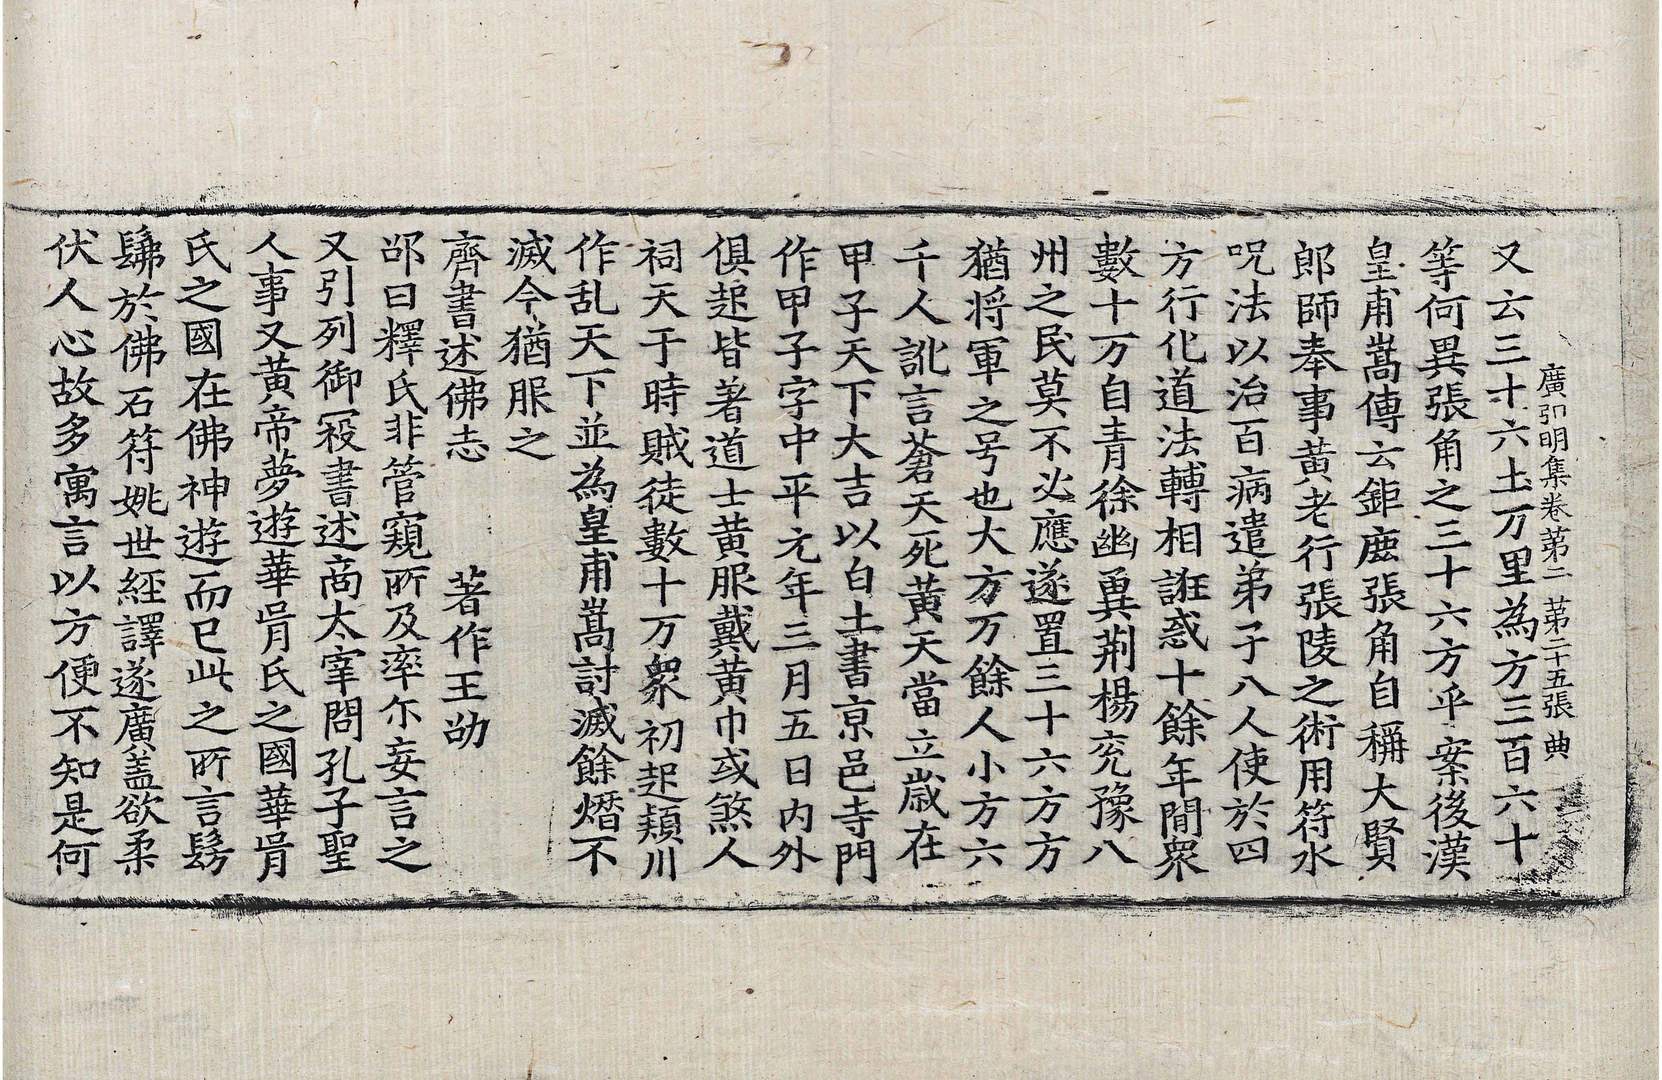 廣弘明集卷第二 第二十五張 典
又云三十六土万里為方三百六十
等何異張角之三十六方乎案後漢
皇甫嵩傳云鉅鹿張角自稱大賢
郎師奉事黄老行張陵之術用符水
呪法以治百病遣弟子八人使於四
方行化道法轉相誑惑十餘年間衆
數十万自青徐幽兾荆楊兖豫八
州之民莫不必應遂置三十六方方
猶将軍之号也大方万餘人小方六
千人訛言蒼天死黄天當立歳在
甲子天下大吉以白土書京邑寺門
作甲子字中平元年三月五日内外
俱起皆著道士黄服戴黄巾或煞人
祠天于時賊徒數十万衆初起潁川
作乱天下並為皇甫嵩討滅餘熸不
滅今猶服之
齊書述佛志 著作王劭
邵曰釋氏非管窺所及率尓妄言之
又引列御寇書述商太宰問孔子聖
人事又黄帝夢遊華胥氏之國華胥
氏之國在佛神遊而已此之所言髣
髴於佛石符姚世經譯遂廣盖欲柔
伏人心故多寓言以方便不知是何